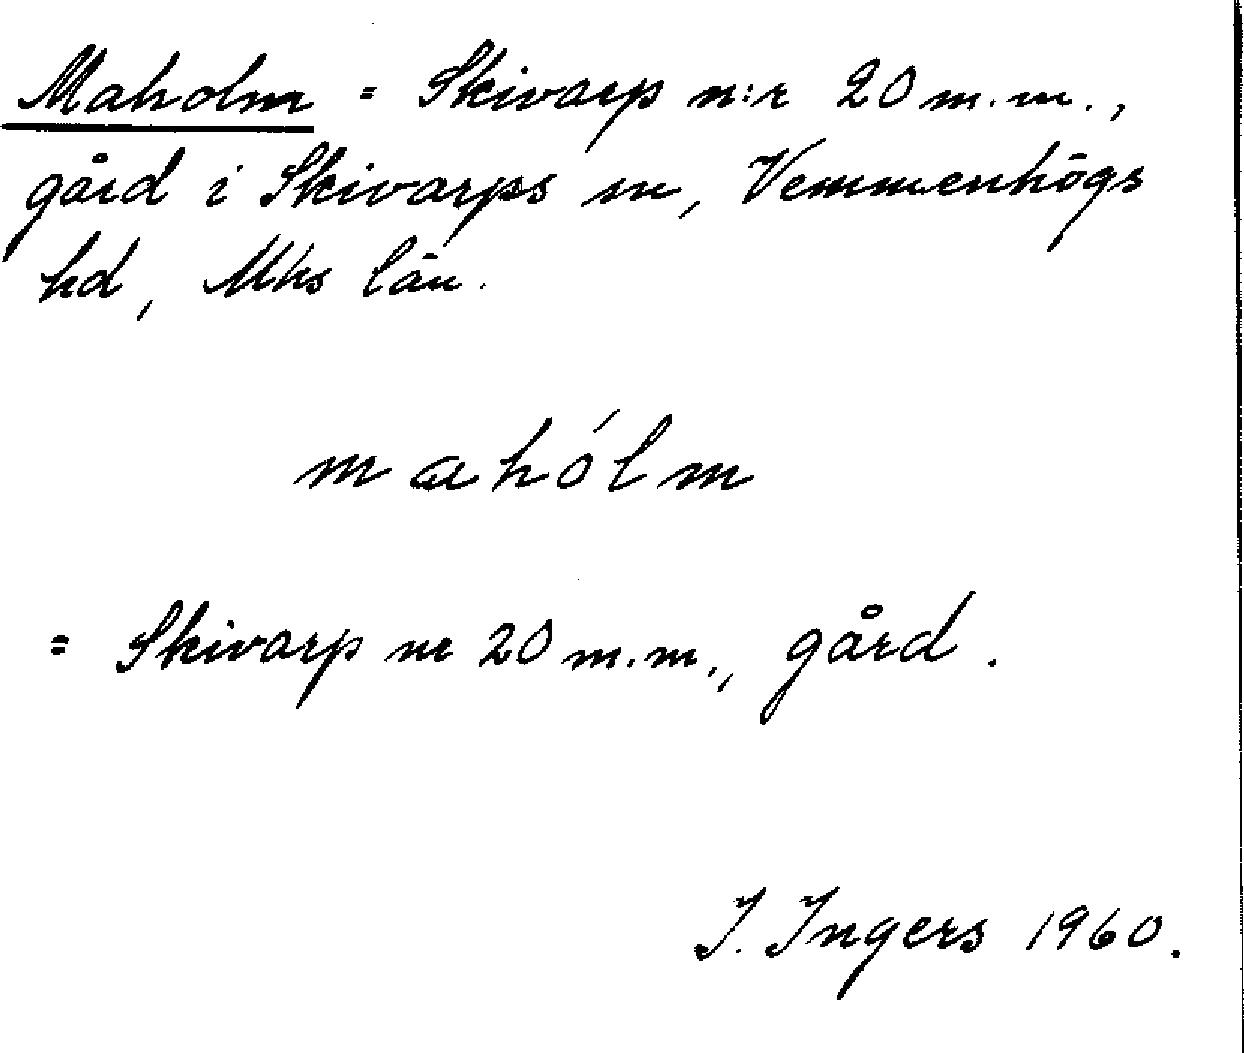 Maholm = Skivarp n:r 20 m.m.,
gård i Skivarps sn, Vemmenhögs
hd, Mhs län.
mahólm
= Skivarp nr 20 m.m., gård.
I. Ingers 1960.